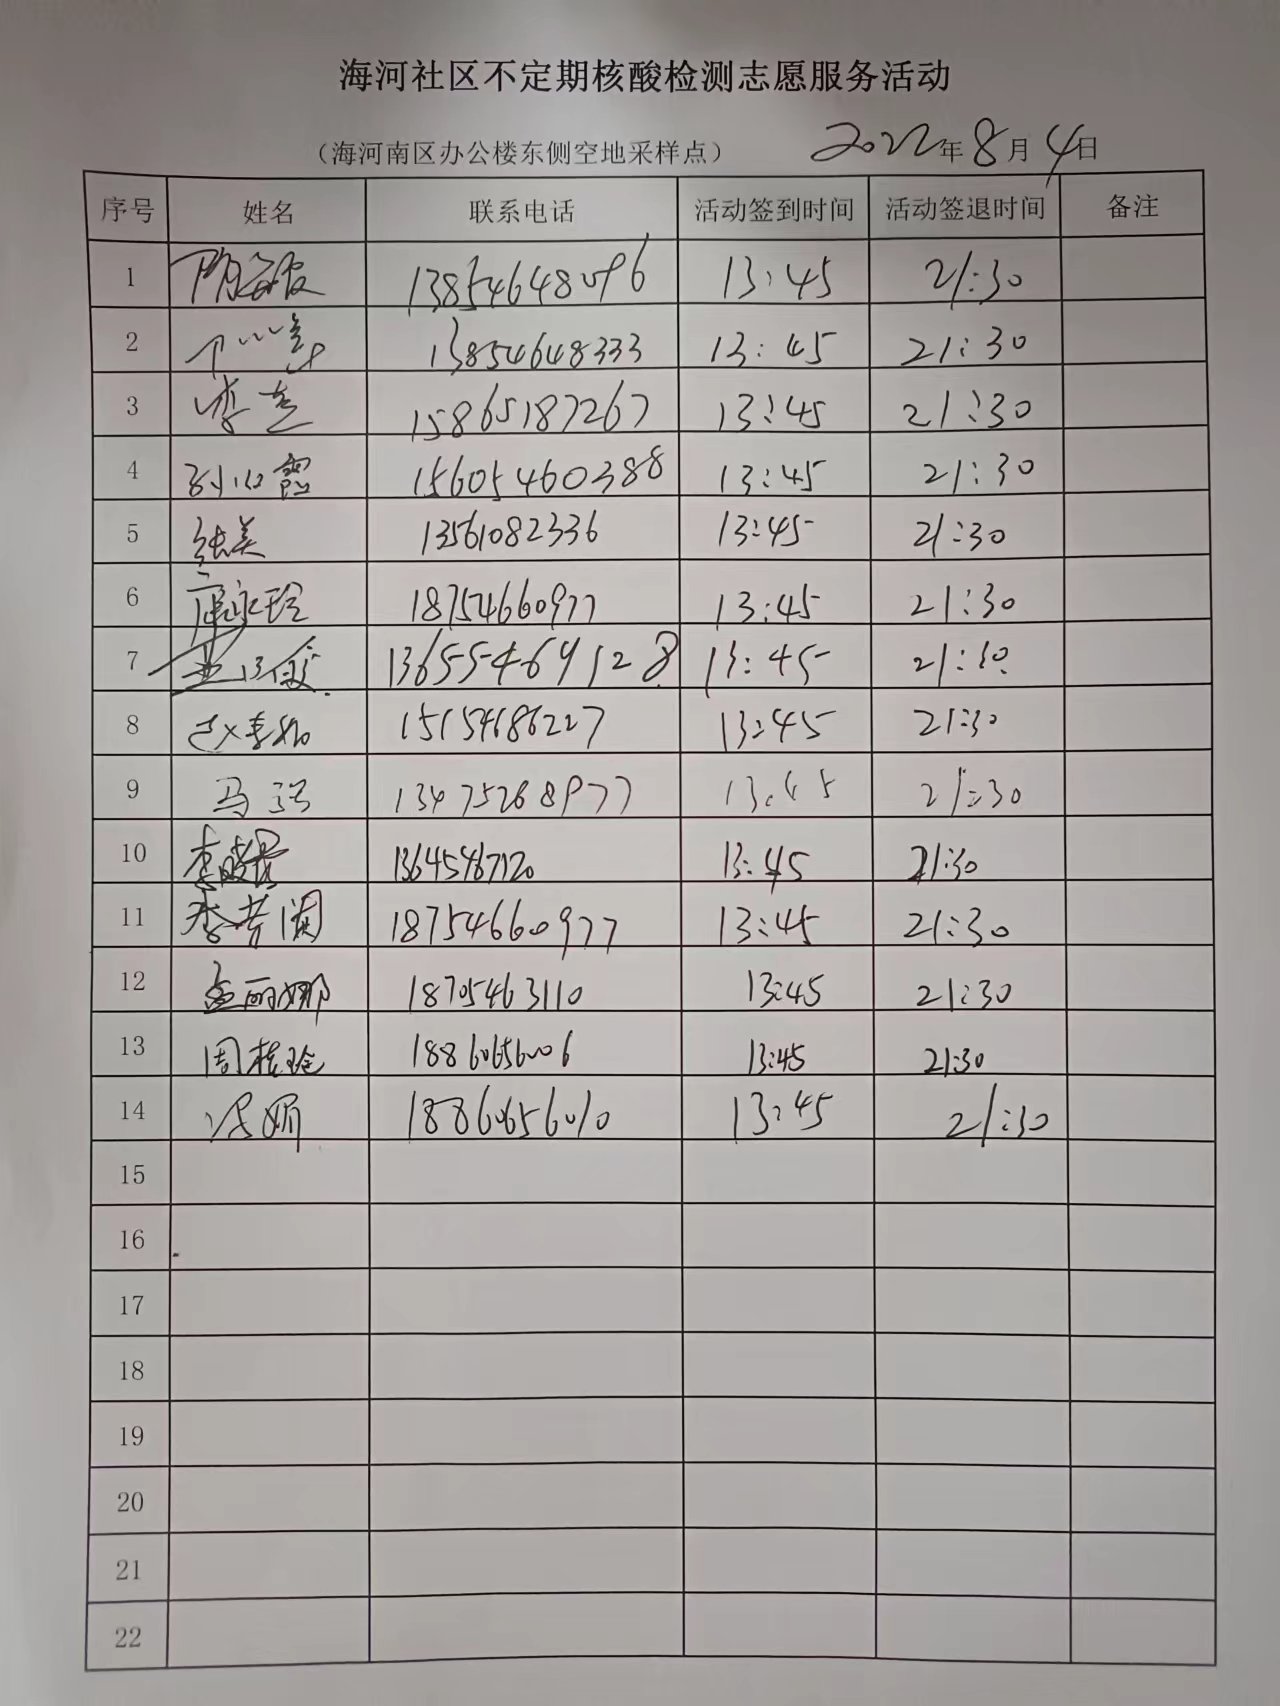 海河社区不定期核酸检测志愿服务活动
（海河南区办公楼东侧空地采样点） 2022年8月4日
序号 姓名 联系电话 活动签到时间 活动签退时间 备注
1 13854648096 13:45 21:30
2 13854648333 13:45 21:30
3 15865187267 13:45 21:30
4 15605460388 13:45 21:30
5 张美 13561082336 13:45 21:30
6 18754660977 13:45 21:30
7 13655469128 13:45 21:30
8 15154686227 13:45 21:30
9 马强 13475268977 13:45 21:30
10 李晓 13645467120 13:45 21:30
11 李芳 18754660977 13:45 21:30
12 孟丽娜 18705463110 13:45 21:30
13 周桂 18860656006 13:45 21:30
14 18860656010 13:45 21:30
15
16
17
18
19
20
21
22